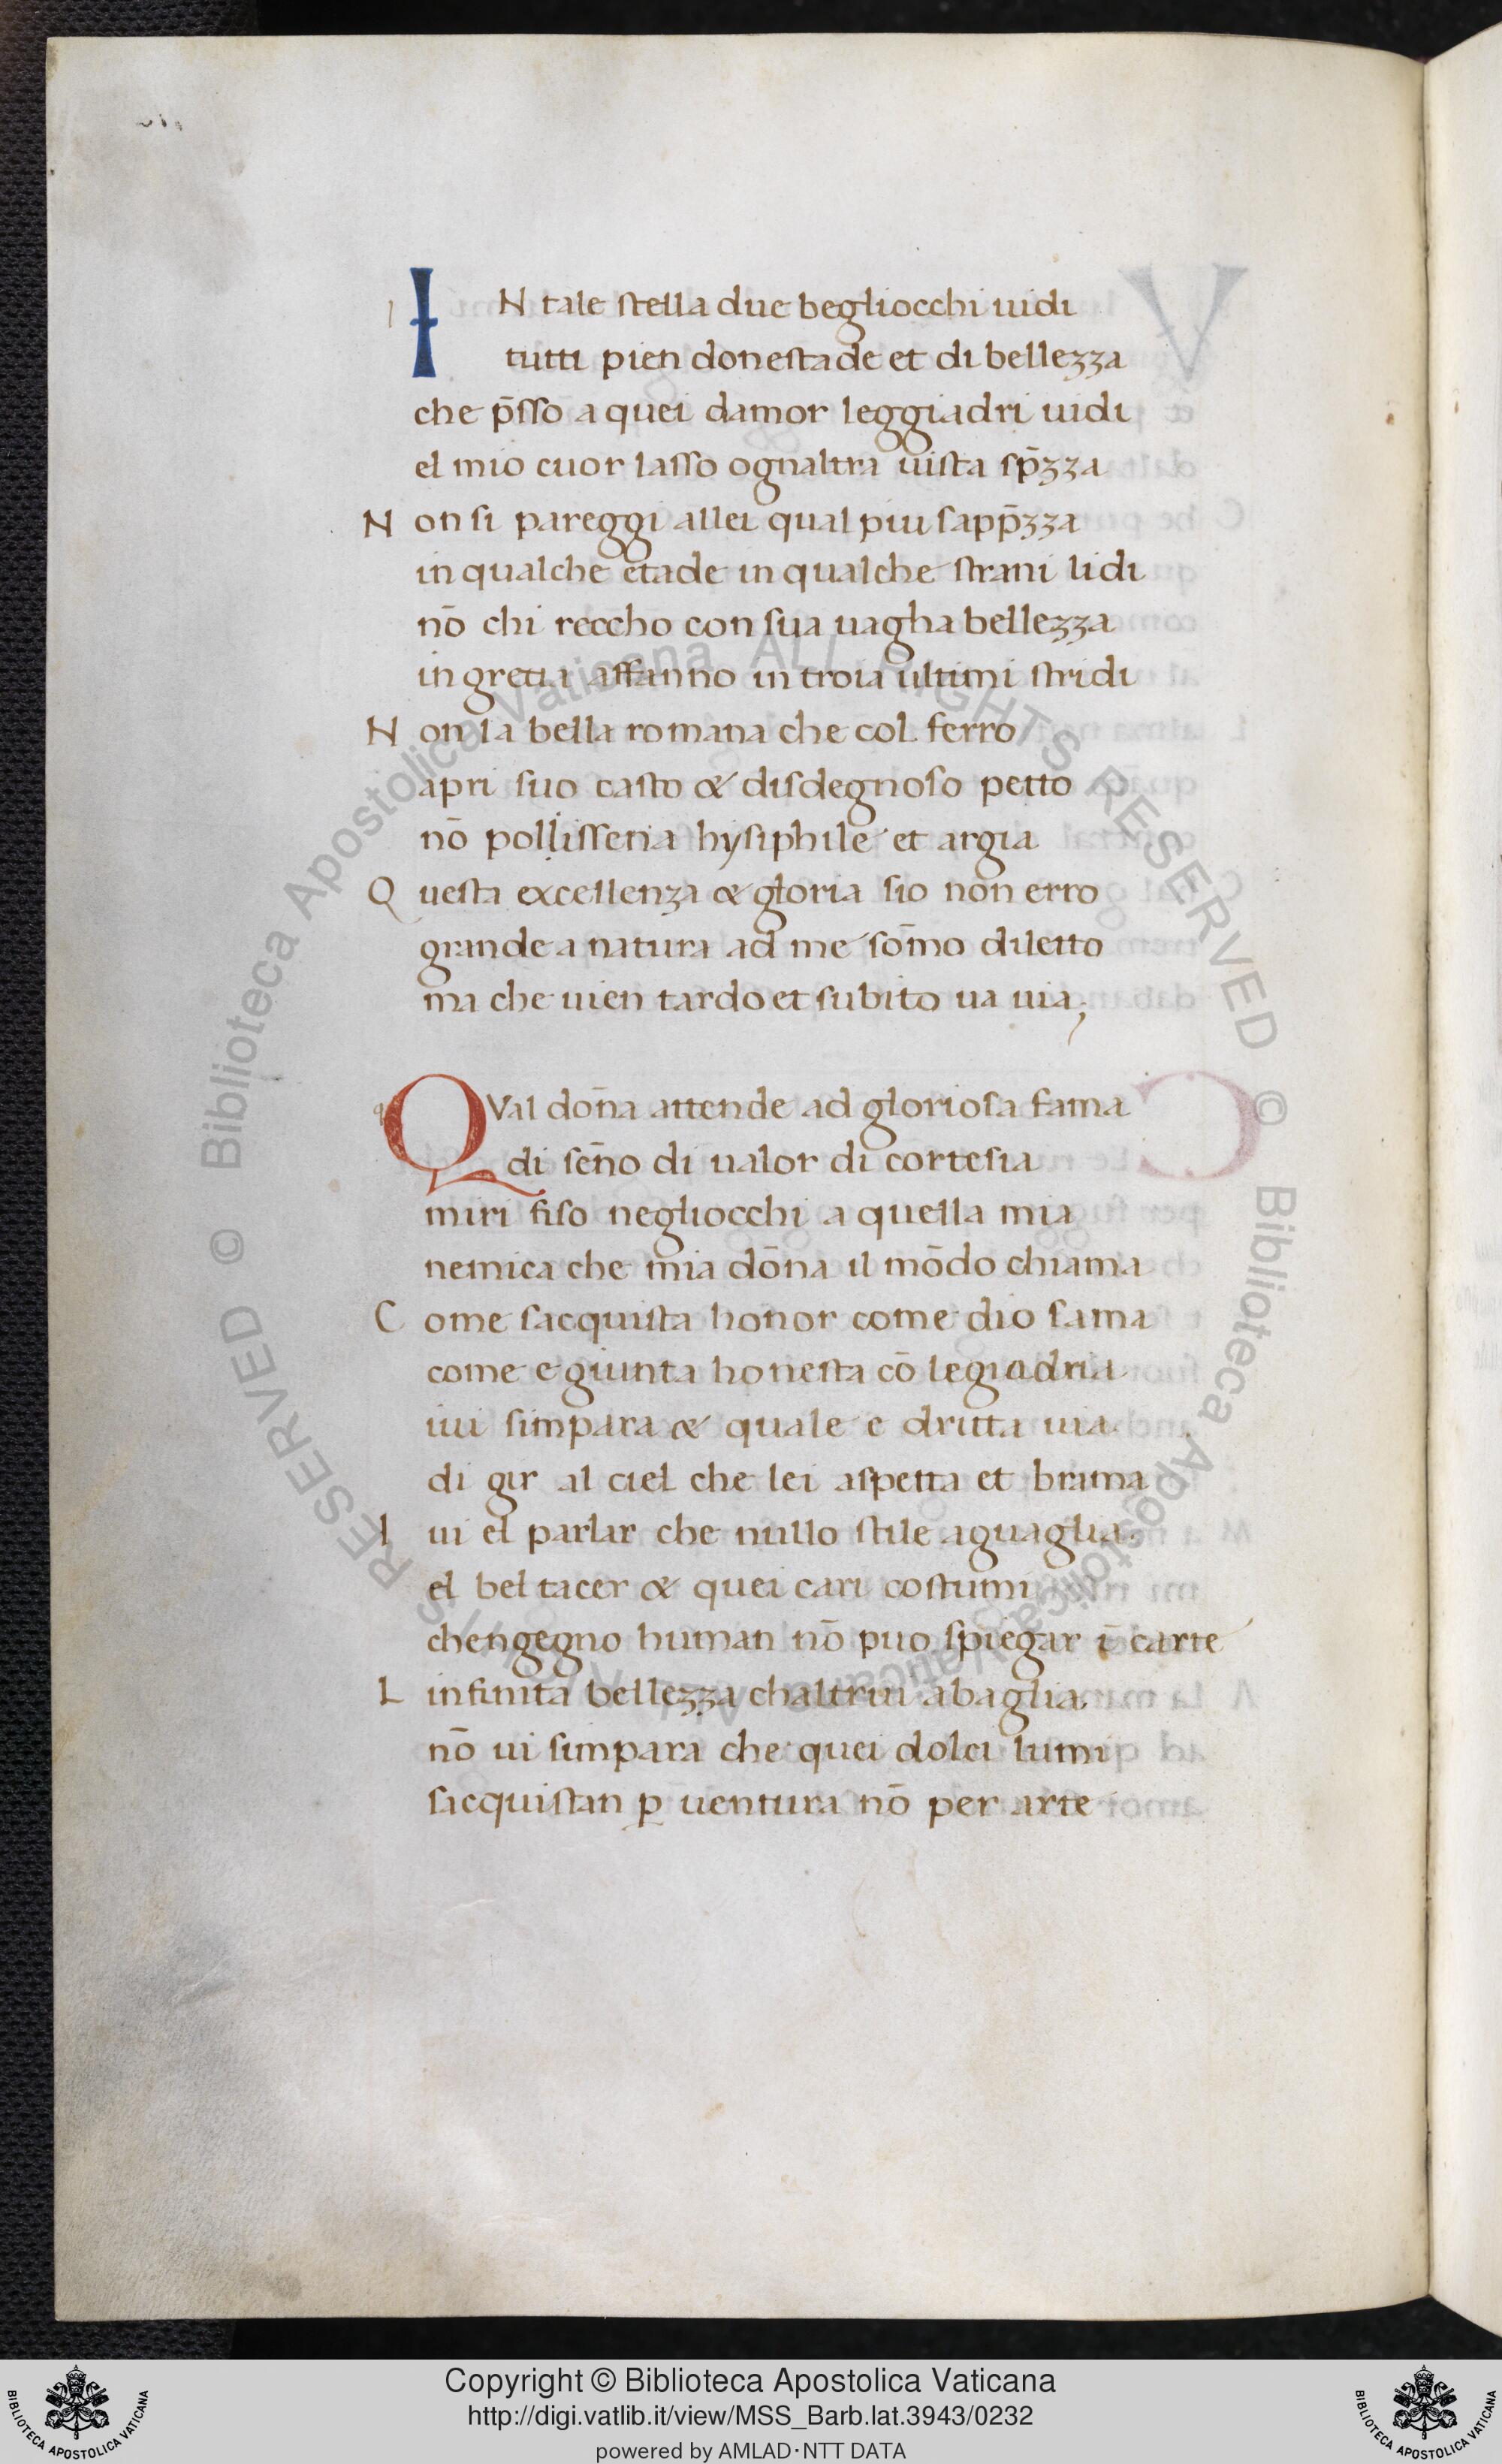 IN tale stella due begliocchi uidi
tutti pien donestade et di bellezza
che p̄sso a quei damor leggiadri uidi
el mio cuor lasso ognaltra uista sp̄zza
Non si pareggi allei qual piu sapp̄zza
in qualche etade in qualche strani lidi
nō chi reccho con sua uagha bellezza
in gretia affanno in troia ultimi stridi
Non la bella romana che col ferro
apri suo casto & disdegnoso petto
nō pollisseria hysiphile et argia
Questa excellenza & gloria sio non erro
grande a natura ad me som̄o diletto
ma che uien tardo et subito ua uia;
QVal don̄a attende ad gloriosa fama
di sen̄o di ualor di cortesia
miri fiso negliocchi a quella mia
nemica che mia dōna il mōdo chiama
Come sacquista honor come dio sama
come e giunta honesta cō legiadria
iui simpara & quale e dritta uia
di gir al ciel che lei aspetta et brama
Iui el parlar che nullo stile aguaglia
el bel tacer & quei cari costumi
chengegno human nō puo spiegar ī carte
Linfinita bellezza chaltrui abaglia
nō ui simpara che quei dolci lumi
sacquistan ꝑ uentura nō per arte
Copyright © Biblioteca Apostolica Vaticana
http://digi.vatlib.it/view/MSS_Barb.lat.3943/0232
powered by AMLAD·NTT DATA
BIBLIOTECA APOSTOLICA VATICANA
BIBLIOTECA APOSTOLICA VATICANA
© Biblioteca Apostolica Vaticana ALL RIGHTS RESERVED
© Biblioteca Apostolica Vaticana ALL RIGHTS RESERVED